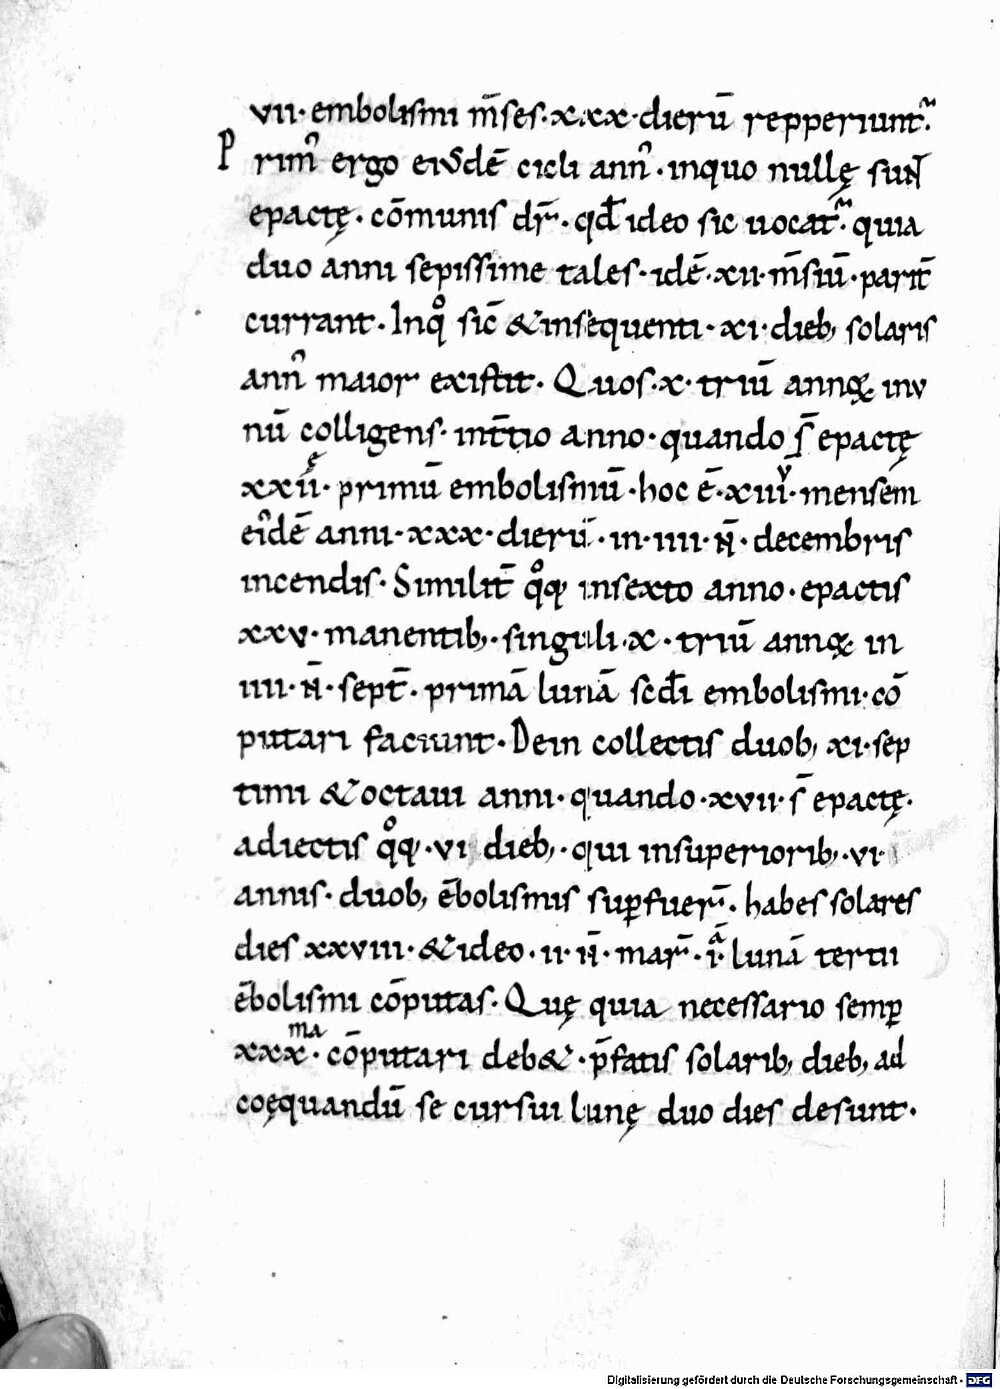 vii· embolismi m̄ses· xxx· dierū repperiunt᷑.
Prim᾿ ergo eiꝰdē cicli ann᾿· inquo nullę sunt
epactę· cōmunis dr̄· qđ ideo sic uocat᷑· quia
duo anni sepissime tales· idē· xii· m̄siū· parit̄
currant· Inqͦ sic̄ & insequenti· xi· dieb; solaris
ann᾿ maior existit· Quos· x· triū annoꝝ inv
nū colligens· int̄tio anno· quando s̄ epactę
xxii· primū embolismū· hoc ē· xiii· mensem
ei᾿dē anni· xxx· dierū· in· iiii· n̄· decembris
incendis· Similit̄ qͦꝙ insexto anno· epactis
xxv· manentib;· singuli· x· triū annoꝝ in
iiii· n̄· sept̄· primā lunā scđi embolismi· cō
putari faciunt· Dein collectis duob; xi· sep
timi & octaui anni· quando· xvii· s̄ epactę·
adiectis qͦꝙ· vi dieb;· qui insuperiorib;· vi·
annis· duob; ēbolismis suꝑfuer̄· habes solares
dies xxviii· & ideo· ii· n̄· mar̄· i·ͣ lunā tertii
ēbolismi cōputas· Quę quia necessario semꝑ
xxx·ᵐᵃ cōputari deb&· p̄fatis solarib; dieb; ad
coęquandū se cursui lunę duo dies desunt·
Digitalisierung gefördert durch die Deutsche Forschungsgemeinschaft · DFG